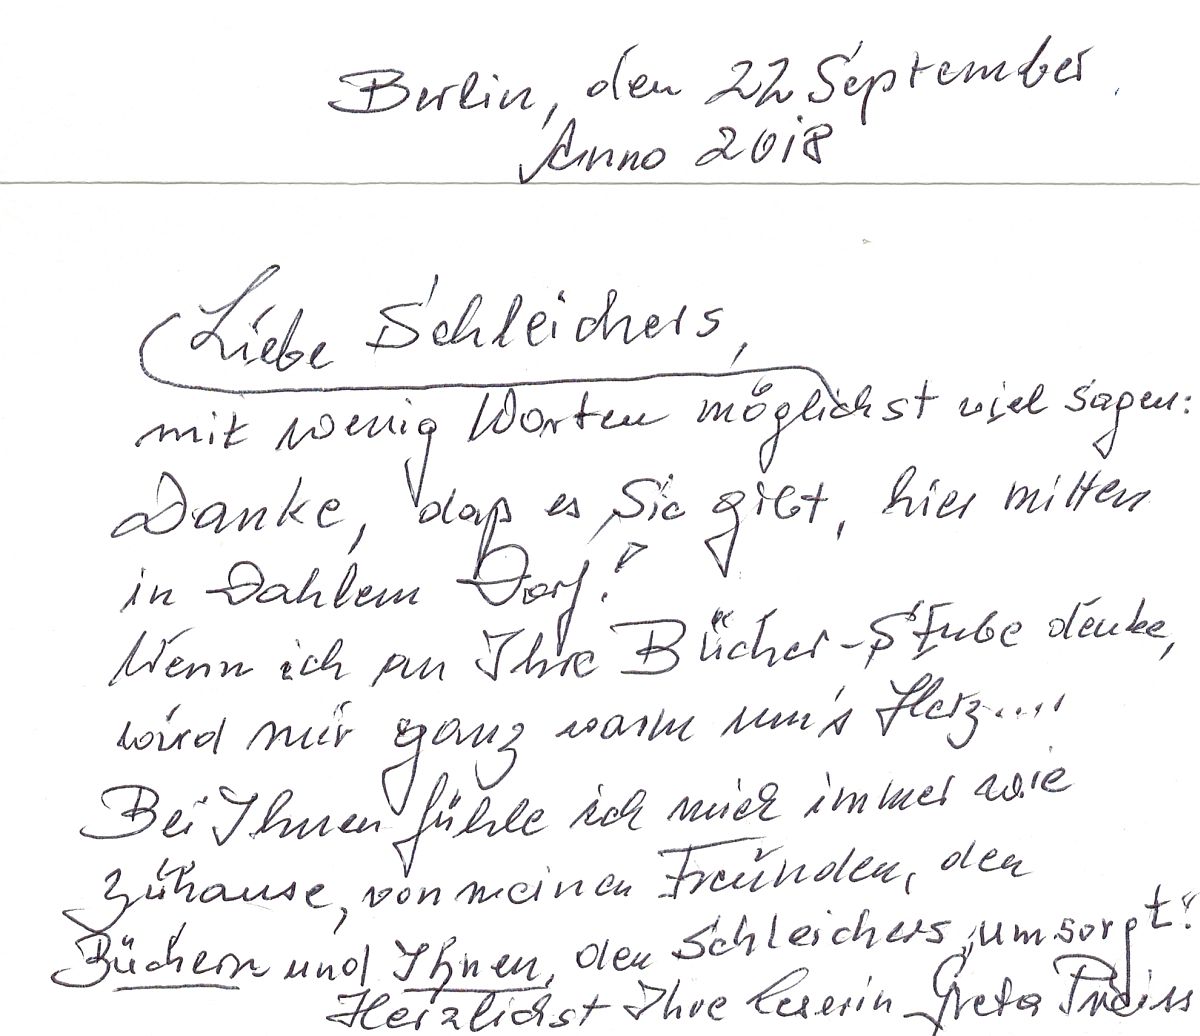 Berlin, den 22 September
Anno 2018
Liebe Schleichers,
mit wenig Worten möglichst viel sagen:
Danke, daß es Sie gibt, hier mitten
in Dahlem Dorf!
Wenn ich an Ihre Bücher-Stube denke,
wird mir ganz warm um's Herz....
Bei Ihnen fühle ich mich immer wie
zuhause, von meinen Freunden, den
Büchern und Ihnen, den Schleichers, umsorgt!
Herzlichst Ihre Leserin Greta